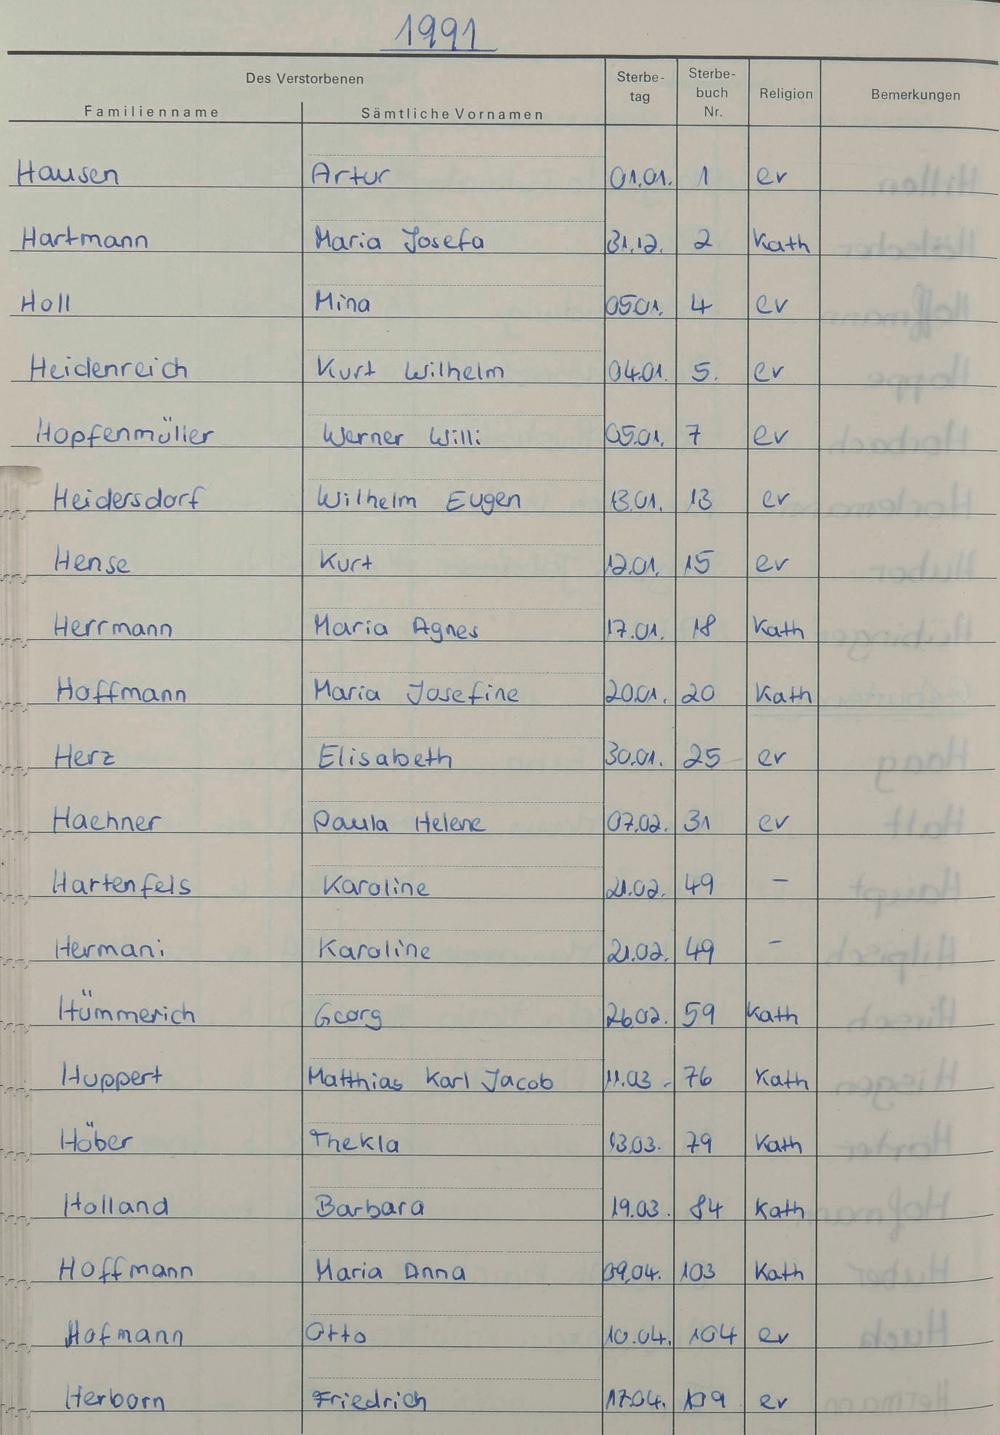 1991
Des Verstorbenen
Familienname
Sämtliche Vornamen
Sterbe-
tag
Sterbe-
buch
Nr.
Religion
Bemerkungen
Hausen Artur 01.01. 1 ev
Hartmann Maria Josefa 31.12. 2 Kath
Holl Mina 05.01. 4 ev
Heidenreich Kurt Wilhelm 04.01. 5. ev
Hopfenmüller Werner Willi 05.01. 7 ev
Heidersdorf Wilhelm Eugen 13.01. 13 ev
Hense Kurt 12.01. 15 ev
Herrmann Maria Agnes 17.01. 18 Kath
Hoffmann Maria Josefine 20.01. 20 Kath
Herz Elisabeth 30.01. 25 ev
Haehner Paula Helene 07.02. 31 ev
Hartenfels Karoline 21.02. 49 –
Hermani Karoline 21.02. 49 –
Hümmerich Georg 26.02. 59 Kath
Huppert Matthias Karl Jacob 11.03. 76 Kath
Höber Thekla 13.03. 79 Kath
Holland Barbara 19.03. 84 Kath
Hoffmann Maria Anna 09.04. 103 Kath
Hofmann Otto 10.04. 104 ev
Herborn Friedrich 17.04. 109 ev